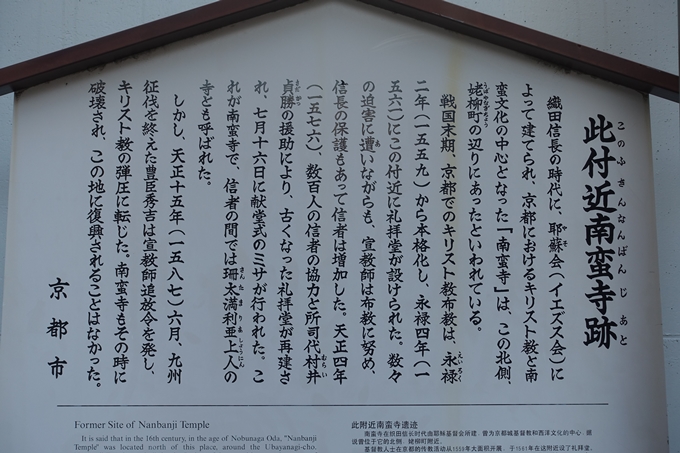 此付近南蛮寺跡
このふきんなんばんじあと
織田信長の時代に、耶蘇会(イエズス会)に
よって建てられ、京都におけるキリスト教と南
蛮文化の中心となった「南蛮寺」は、この北側、
姥柳町の辺りにあったといわれている。
戦国末期、京都でのキリスト教布教は、永禄
二年(一五五九)から本格化し、永禄四年(一
五六一)にこの付近に礼拝堂が設けられた。数々
の迫害に遭いながらも、宣教師は布教に努め、
信長の保護もあって信者は増加した。天正四年
(一五七六)、数百人の信者の協力と所司代村井
貞勝の援助により、古くなった礼拝堂が再建さ
れ、七月十六日に献堂式のミサが行われた。こ
れが南蛮寺で、信者の間では珊太満利亜上人の
寺とも呼ばれた。
しかし、天正十五年(一五八七)六月、九州
征伐を終えた豊臣秀吉は宣教師追放令を発し、
キリスト教の弾圧に転じた。南蛮寺もその時に
破壊され、この地に復興されることはなかった。
京都市
Former Site of Nanbanji Temple
It is said that in the 16th century, in the age of Nobunaga Oda, "Nanbanji
Temple" was located north of this place, around the Ubayanagi-cho.
此附近南蛮寺遗迹
南蛮寺在织田信长时代由耶稣基督会所建,曾为京都城基督教和西洋文化的中心。据
说曾位于它的北侧,姥柳町附近。
基督教人士在京都的传教活动从1559年大面积开展,于1561年在这附近设了礼拜堂。